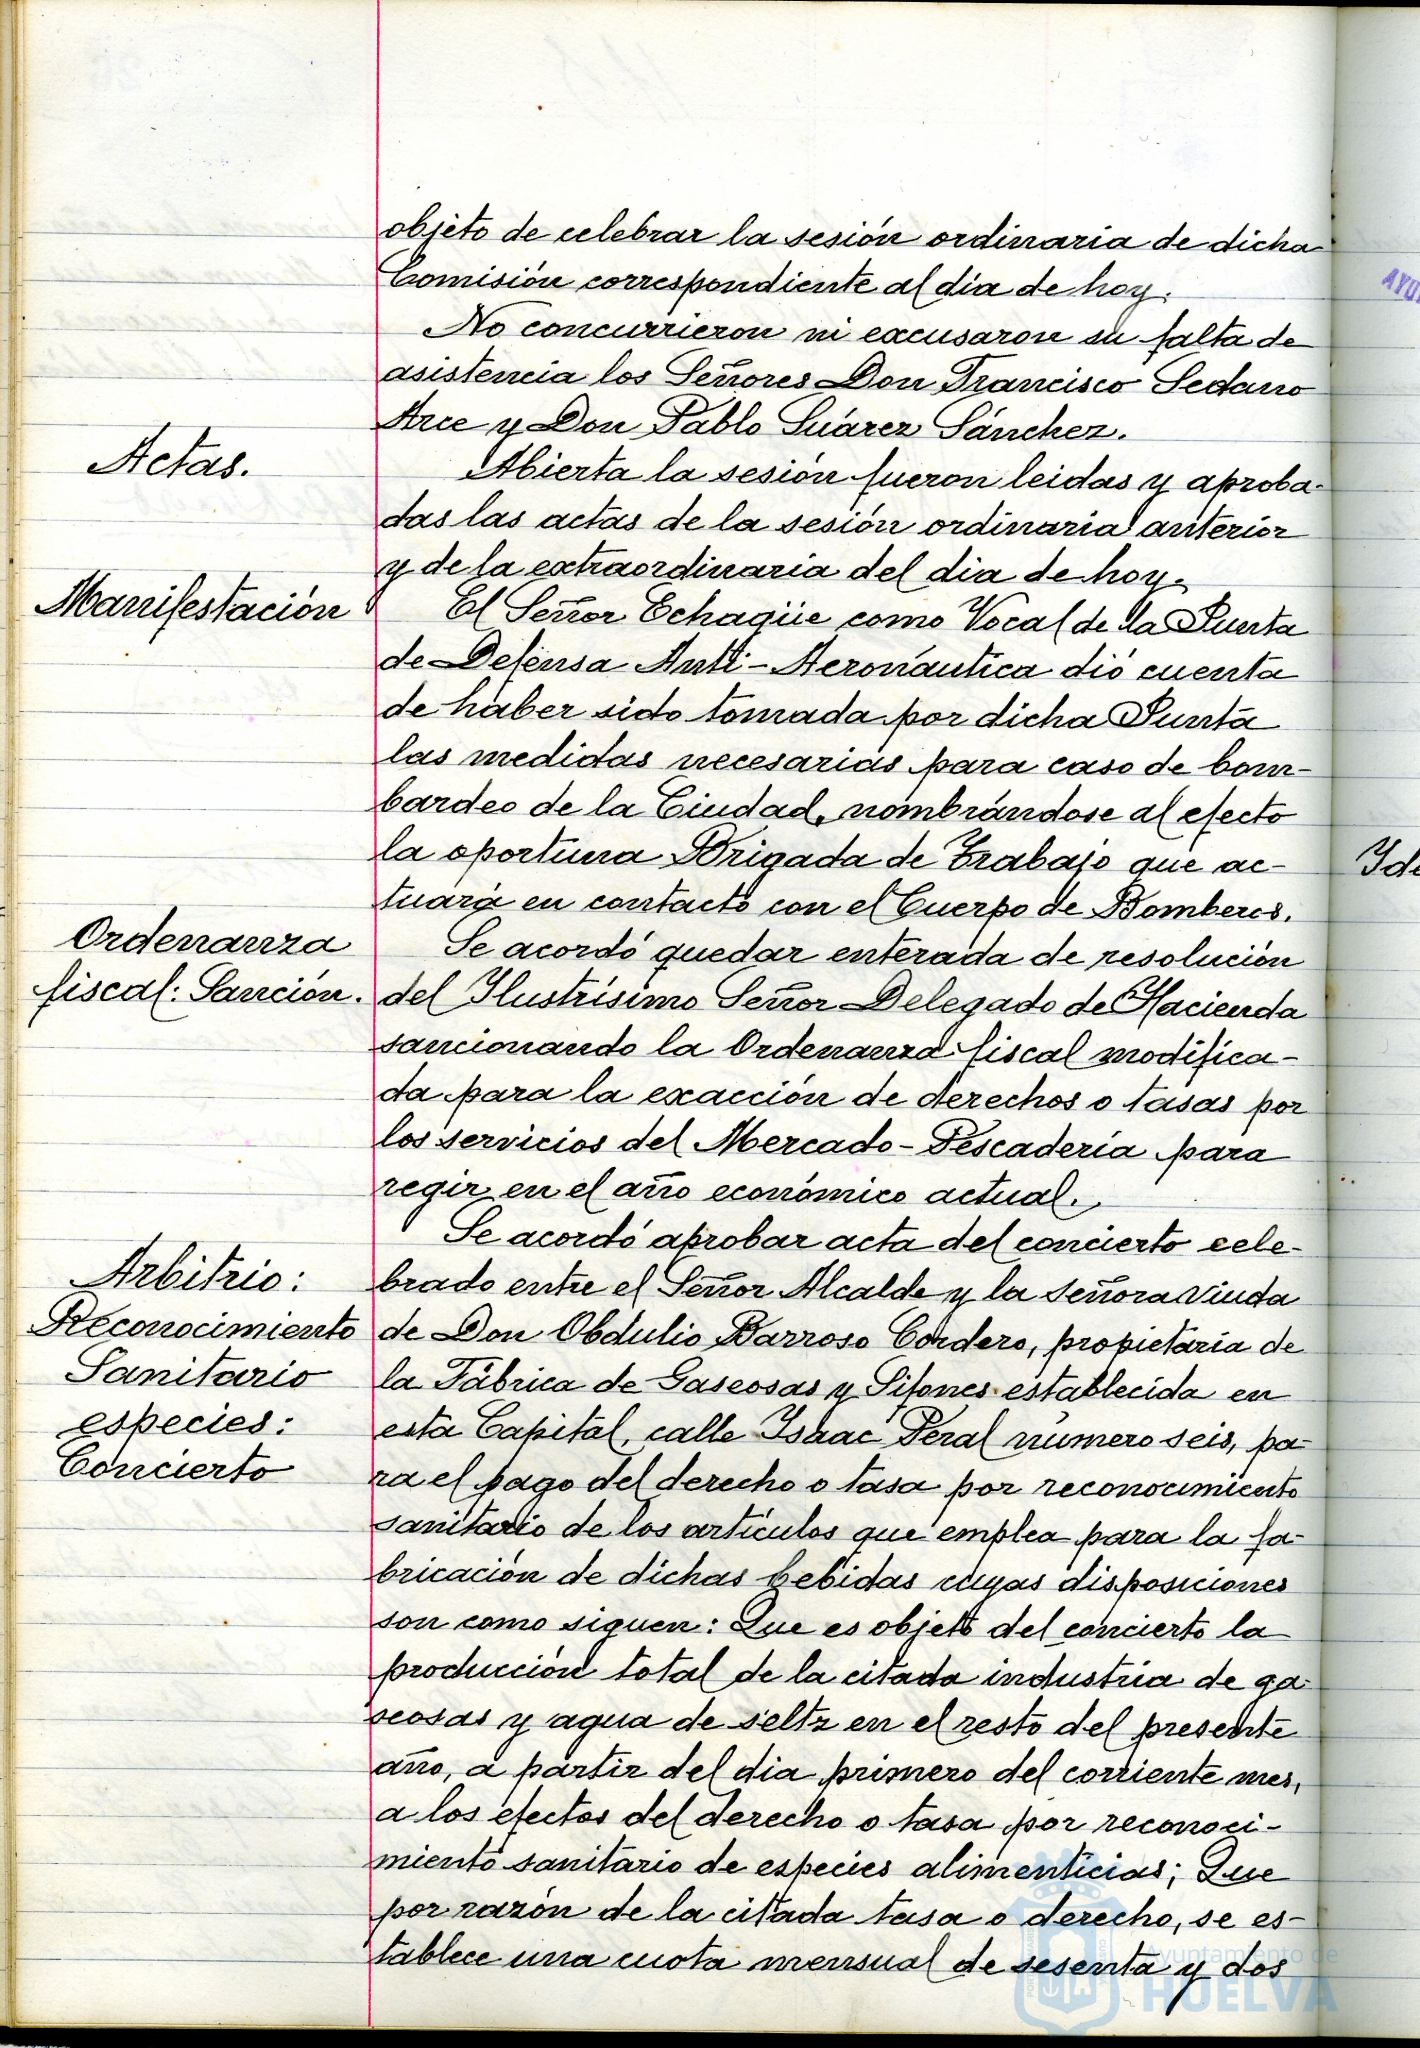 objeto de celebrar la sesión ordinaria de dicha
Comisión correspondiente al día de hoy.
No concurrieron ni excusaron su falta de
asistencia los Señores Don Francisco Sedano
Arce y Don Pablo Suárez Sánchez.
Actas.
Abierta la sesión fueron leidas y aproba-
das las actas de la sesión ordinaria anterior
y de la extraordinaria del dia de hoy.
Manifestación
El Señor Echagüe como Vocal de la Junta
de Defensa Anti-Aeronáutica dió cuenta
de haber sido tomada por dicha Junta
las medidas necesarias para caso de bom-
bardeo de la Ciudad, nombrándose al efecto
la oportuna Brigada de Trabajo que ac-
tuará en contacto con el Cuerpo de Bomberos.
Ordenanza
fiscal: Sanción.
Se acordó quedar enterada de resolución
del Ilustrísimo Señor Delegado de Hacienda
sancionando la Ordenanza fiscal modifica-
da para la exacción de derechos o tasas por
los servicios del Mercado-Pescadería para
regir en el año económico actual.
Arbitrio:
Reconocimiento
Sanitario
especies:
Concierto
Se acordó aprobar acta del concierto cele-
brado entre el Señor Alcalde y la señora viuda
de Don Obdulio Barroso Cordero, propietaria de
la Fábrica de Gaseosas y Sifones establecida en
esta Capital, calle Isaac Peral número seis, pa-
ra el pago del derecho o tasa por reconocimiento
sanitario de los artículos que emplea para la fa-
bricación de dichas bebidas cuyas disposiciones
son como siguen: Que es objeto del concierto la
producción total de la citada industria de ga-
seosas y agua de seltz en el resto del presente
año, a partir del dia primero del corriente mes,
a los efectos del derecho o tasa por reconoci-
miento sanitario de especies alimenticias; Que
por razón de la citada tasa o derecho, se es-
tablece una cuota mensual de sesenta y dos
Ayuntamiento de
HUELVA